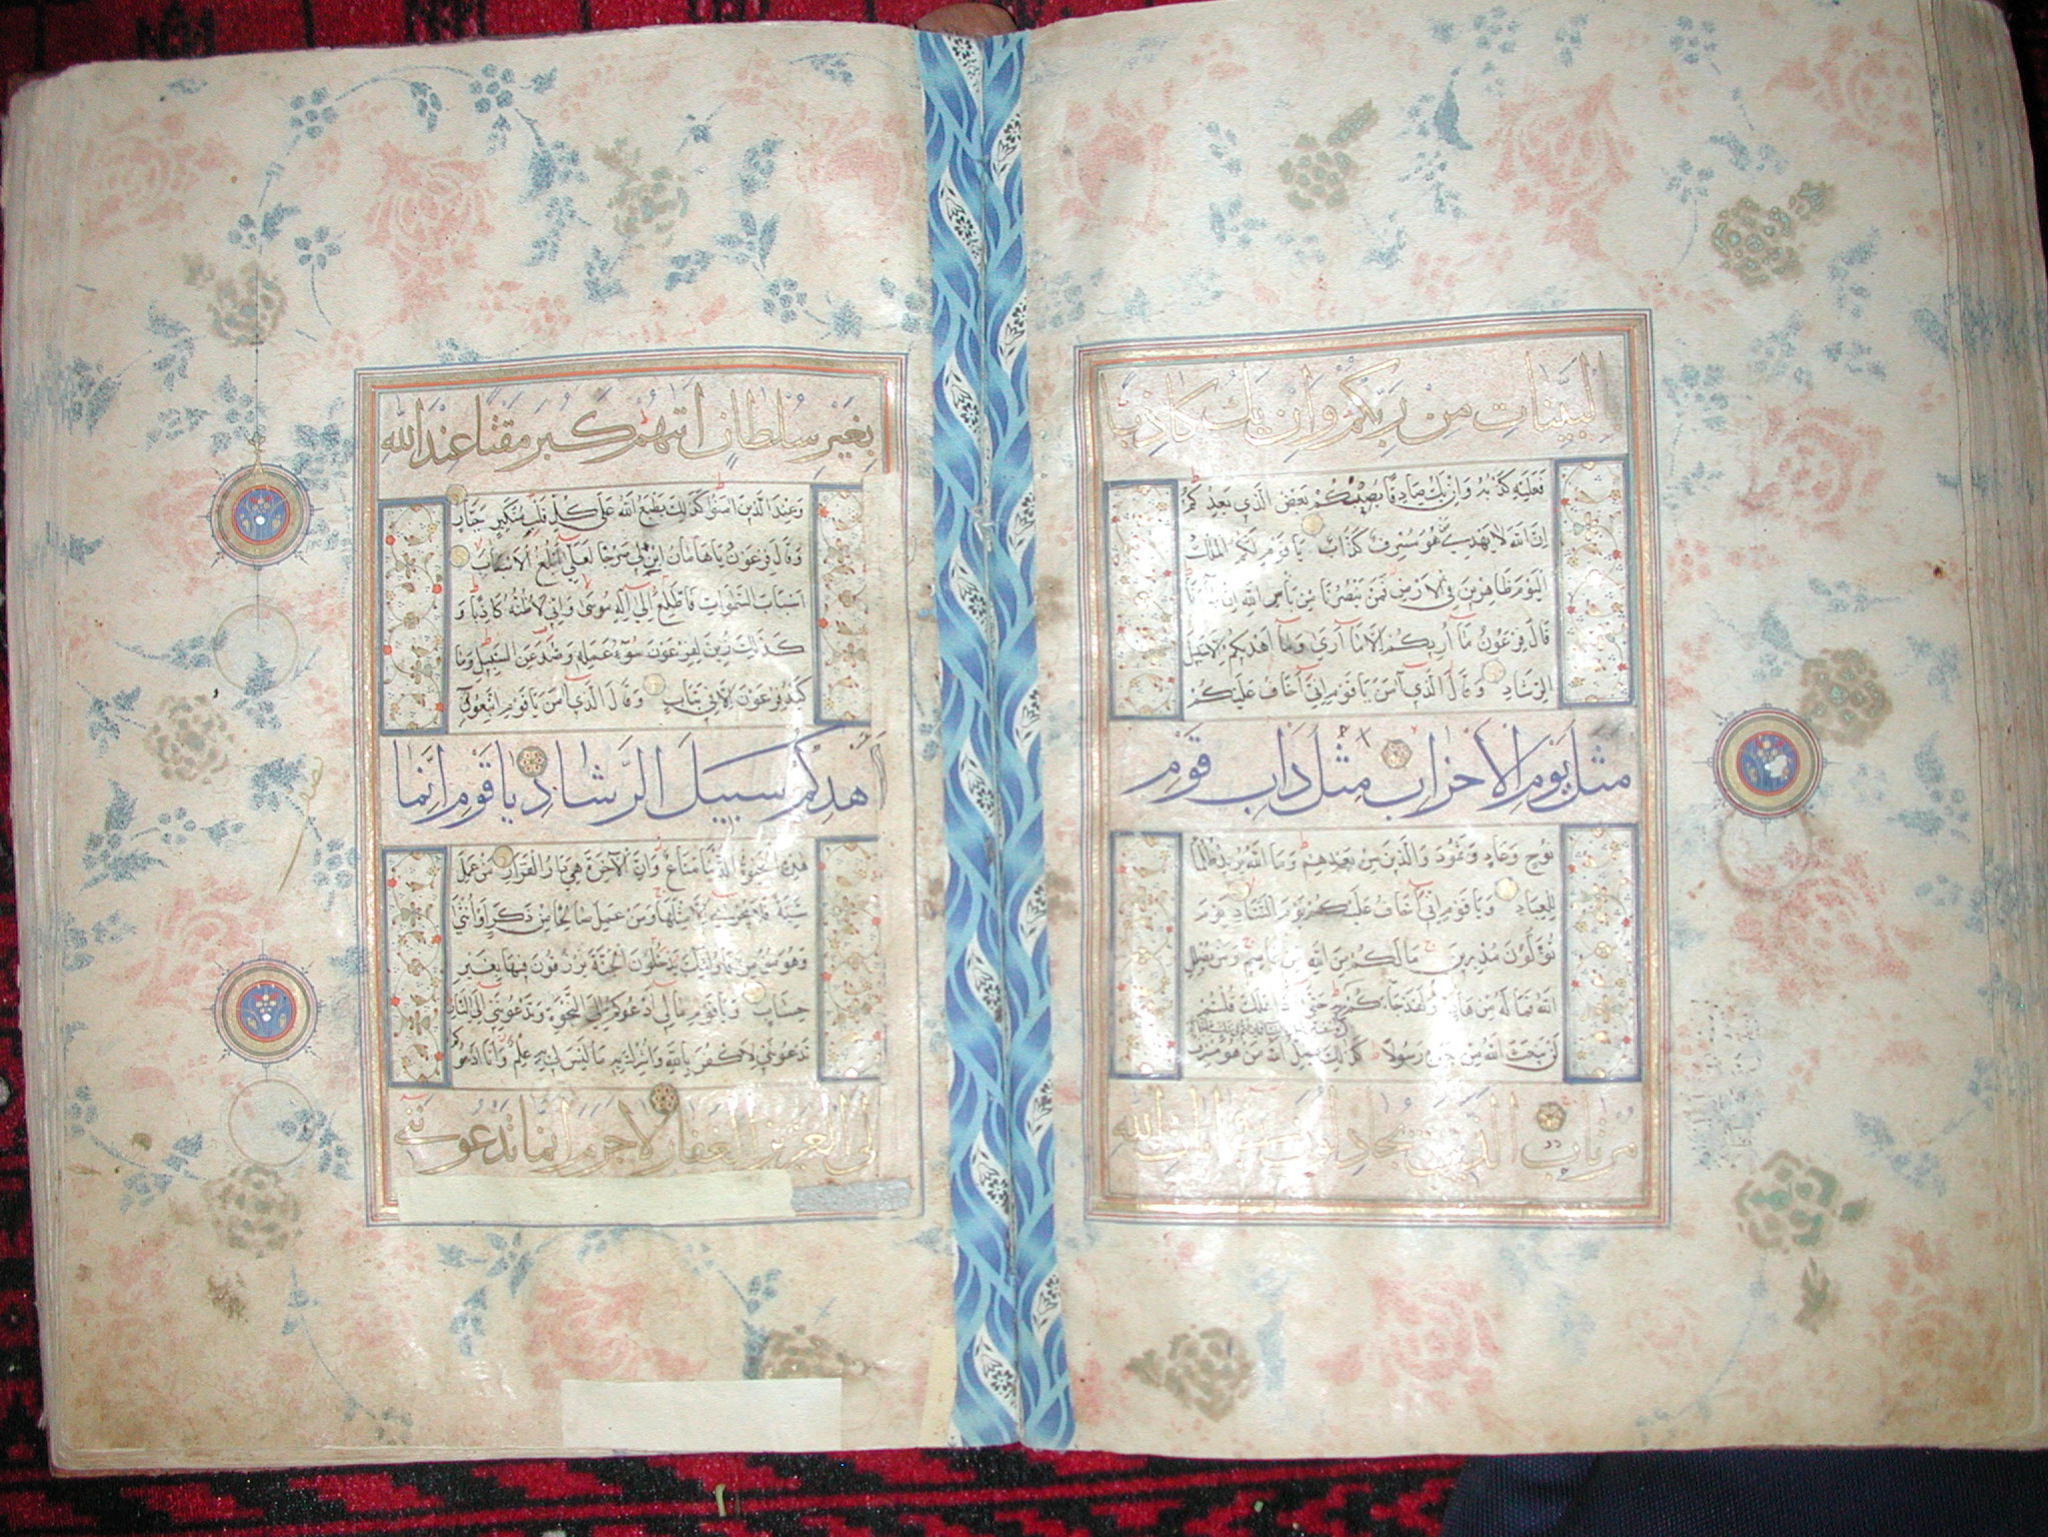 البينات من ربكم وان يك كاذبا
فعليه كذبه وان يك صادقا يصبكم بعض الذي يعدكم
ان الله لا يهدي من هو مسرف كذاب يا قوم لكم الملك
اليوم ظاهرين في الارض فمن ينصرنا من بأس الله ان جآءنا
قال فرعون مآ اريكم الا مآ آري ومآ اهديكم الا سبيل
الرشاد وقال الذي آمن يا قوم اني آخاف عليكم
مثل يوم الاحزاب مثل داب قوم
نوح وعاد وثمود والذين من بعدهم وما الله يريد ظلما
للعباد ويا قوم اني آخاف عليكم يوم التناد يوم
تولون مدبرين ما لكم من الله من عاصم ومن يضلل
الله فما له من هاد ولقد جآءكم حتى اذا هلك قلتم
لن يبعث الله من بعده رسولا كذلك يضل الله من هو مسرف
مرتاب الذين يجادلون في آيات الله
بغير سلطان اتيهم كبر مقتا عند الله
وعند الذين آمنوا كذلك يطبع الله على كل قلب متكبر جبار
وقال فرعون يا هامان ابن لي صرحا لعلي آبلغ الاسباب
اسباب السموات فاطلع الي آله موسى واني لاظنه كاذبا و
كذلك زين لفرعون سوء عمله وصد عن السبيل وما
كيد فرعون الا في تباب وقال الذي آمن يا قوم اتبعوني
اهدكم سبيل الرشاد يا قوم انما
هذه الحيوة الدنيا متاع وان الآخرة هي دار القرار من عمل
سيئة فلا يجزي الا مثلها ومن عمل صالحا من ذكر او انثى
وهو مؤمن فاولئك يدخلون الجنة يرزقون فيها بغير
حساب ويا قوم ما لي ادعوكم الى النجوة وتدعونني الى النار
تدعونني لاكفر بالله واشرك به ما ليس لي به علم وانا ادعوكم
الى العزيز الغفار لا جرم انما تدعونني